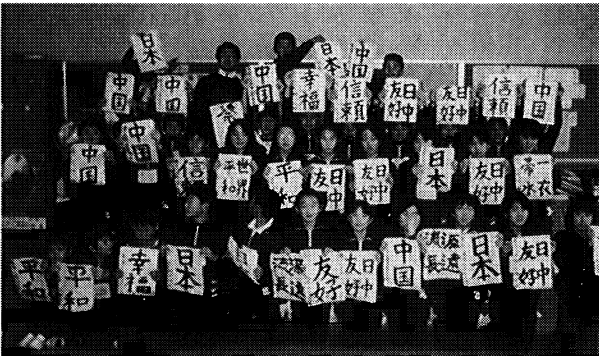 日本
日本
中国
中国
中国
中国
幸福
信頼
日中
友好
日中
友好
信頼
中国
中国
中国
信
世界
平和
平和
日中
友
日中
友好
日本
日中
友好
一衣
帯水
平和
平和
幸福
日本
源遠
流長
友好
日中
友好
中国
源遠
流長
日本
日中
友好